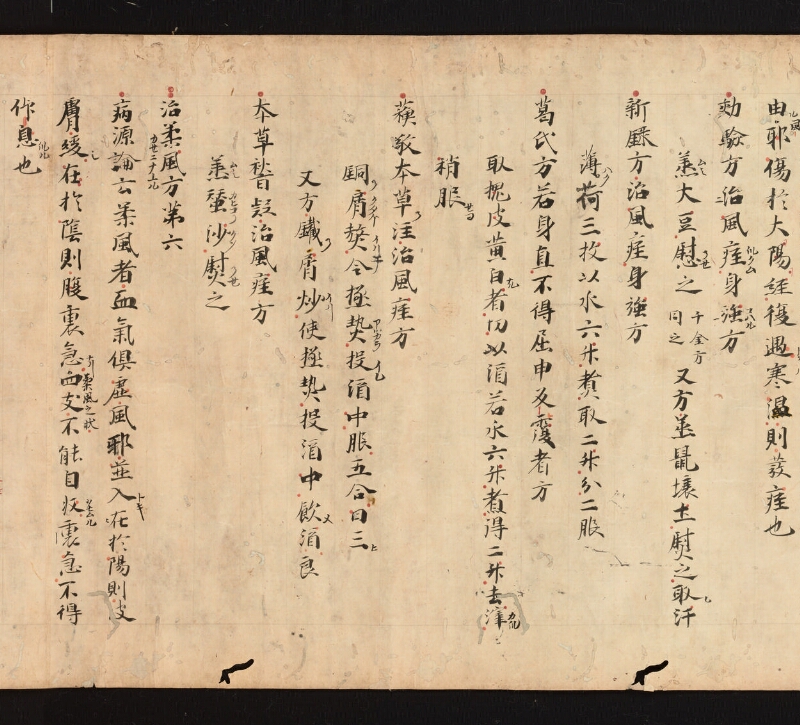 由耶傷於大陽經復遇寒濕則發痓也
効驗方治風痓身強方
蒸大豆熨之 千金方同之 又方蒸鼠壤土熨之取汗
新録方治風痓身強方
薄荷三枚以水六升煮取二升分二服
葛氏方若身直不得屈申反覆者方
取槐皮黄白者切以酒若水六升煮得二升去滓
稍服
蘇敬本草注治風痓方
銅屑熬令極熱投酒中服五合日三
又方鐵屑炒使極熱投酒中飲酒良
本草稽疑治風痓方
蒸蚕沙熨之
治柔風方第六
病源論云柔風者血氣俱虛風耶並入在於陽則皮
膚緩在於陰則腹裏急 柔風之状 四支不能自收裏急不得
仰息也